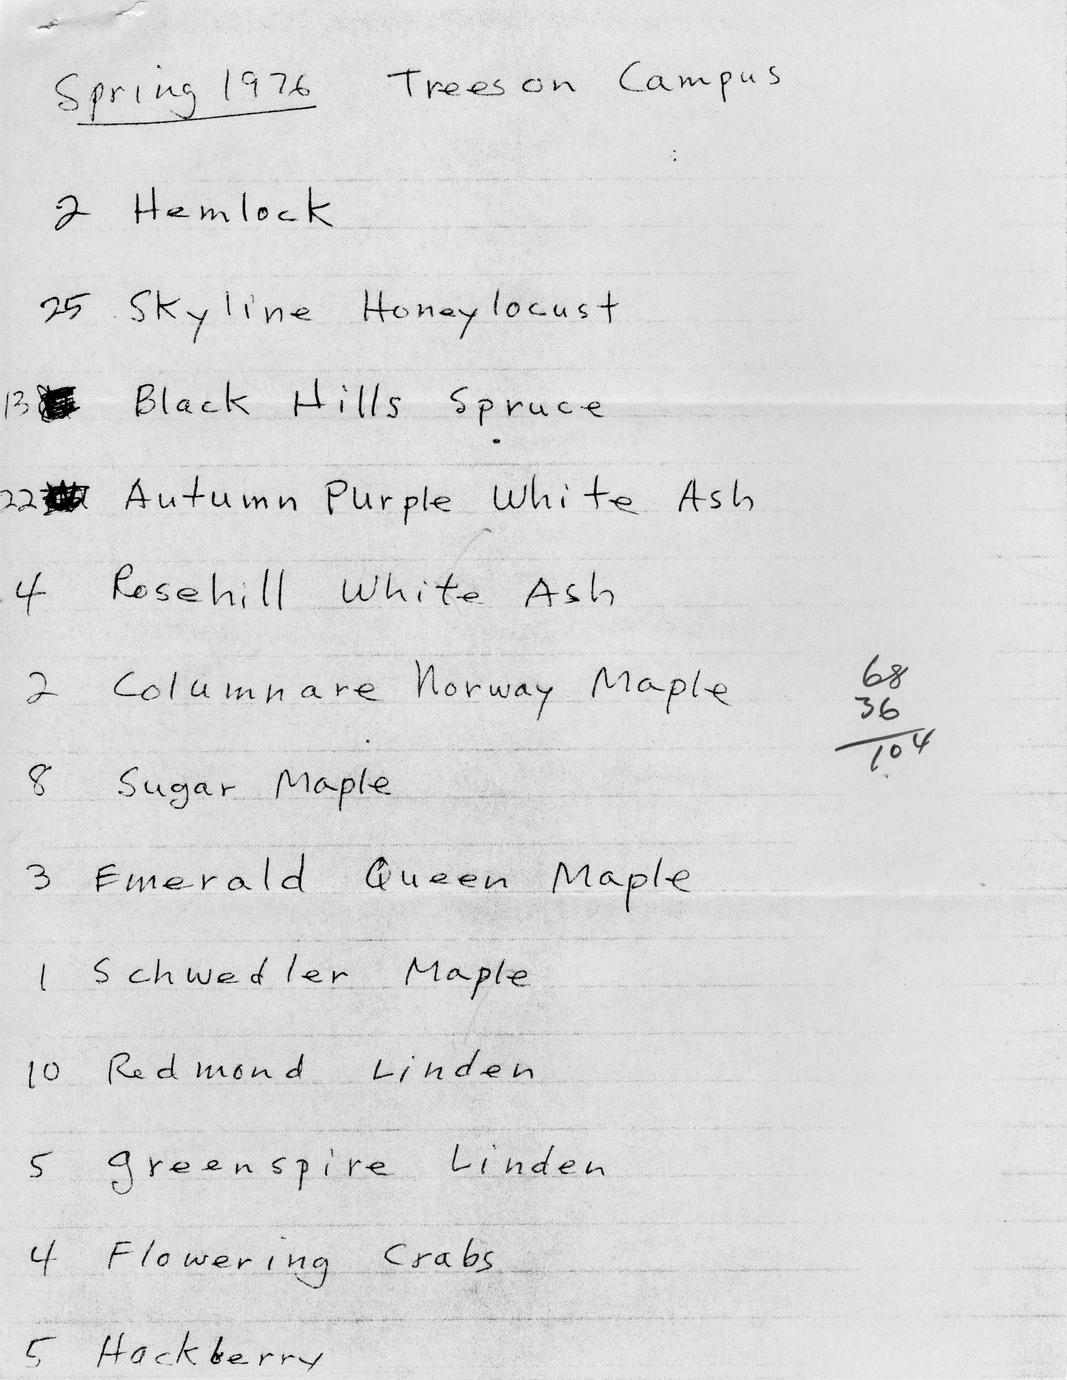 Spring 1976 Trees on Campus
2 Hemlock
25 Skyline Honeylocust
13 Black Hills Spruce
22 Autumn Purple White Ash
4 Rosehill White Ash
2 Columnare Norway Maple
68
36
104
8 Sugar Maple
3 Emerald Queen Maple
1 Schwedler Maple
10 Redmond Linden
5 greenspire Linden
4 Flowering Crabs
5 Hackberry